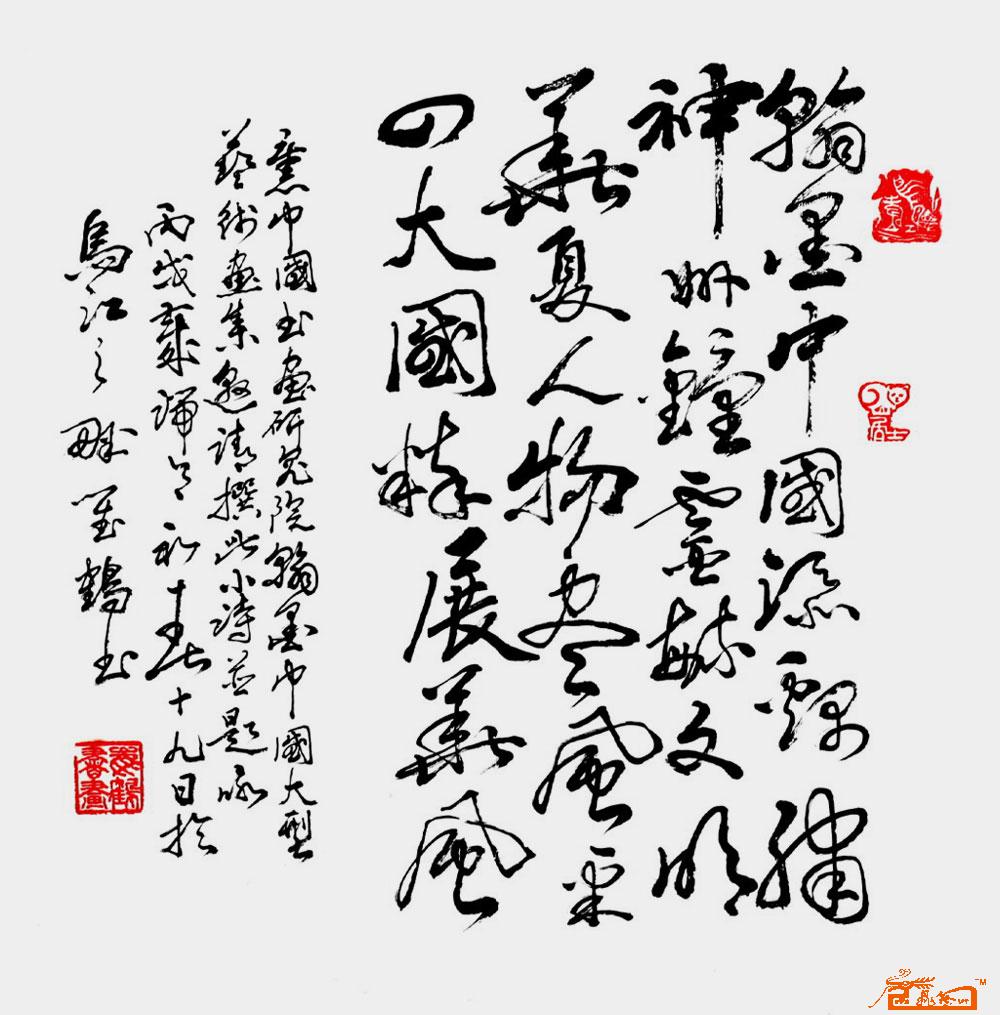 翰墨中國添錦繡
神州鐘靈毓文明
華夏人物盡風采
四大國粹展華風
應中國书画研究院翰墨中國大型
藝術畫集邀請撰此小詩並題咏
丙戌歲端月初春十九日於
烏江之畔 鶴书